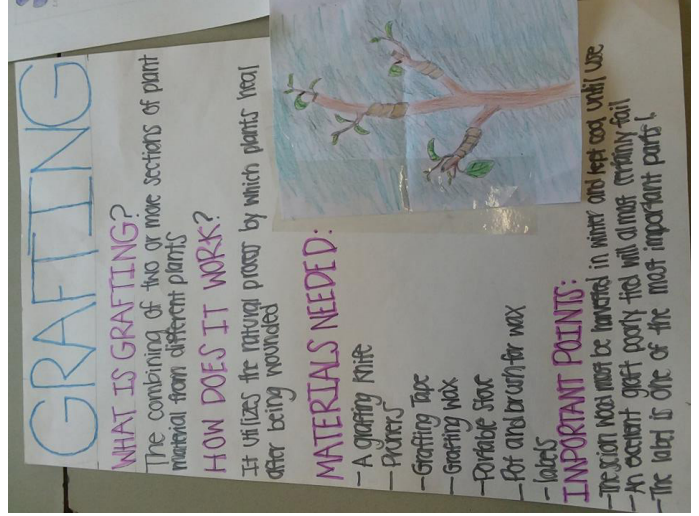 GRAFTING
WHAT IS GRAFTING?
The combining of two or more sections of plant
material from different plants
HOW DOES IT WORK?
It utilizes the natural process by which plants heal
after being wounded
MATERIALS NEEDED:
- A grafting knife
- Pruners
- Grafting Tape
- Grafting wax
- Portable Stove
- Pot and brush for wax
- labels
IMPORTANT POINTS:
- The scion wood must be harvested in winter and kept cool until use
- An excellent graft poorly tied will almost certainly fail
- The label is one of the most important parts!